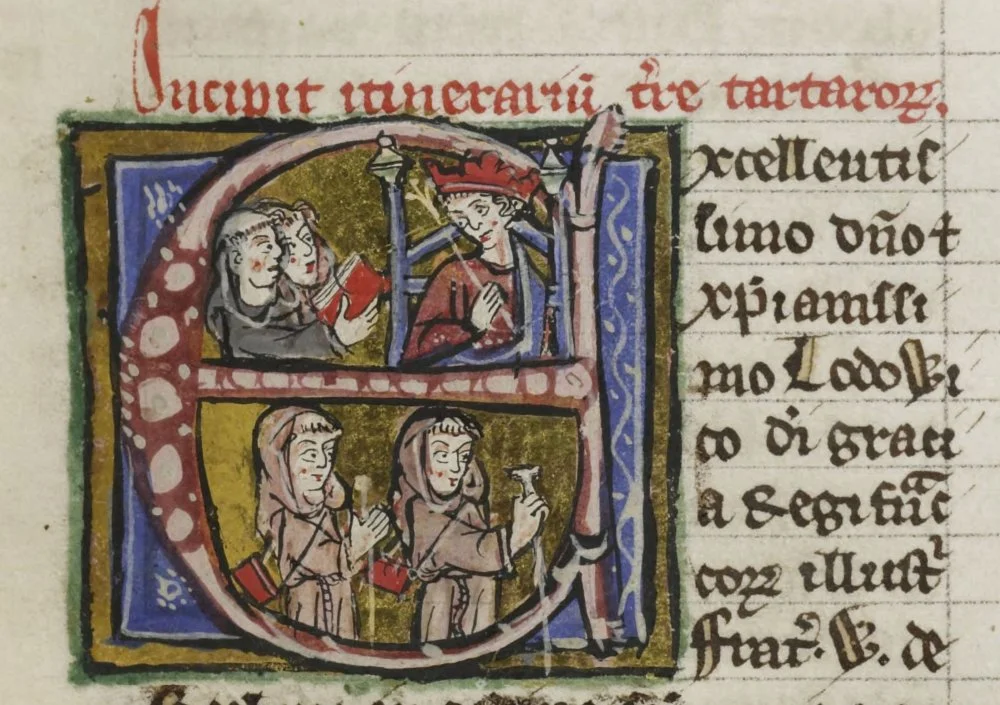 Incipit itinerariū tr̃e tartaroꝝ.
Excellentis
simo dño ⁊
xp̃ianissi
mo Lodowi
co dī graci
a Regi frāc
coꝝ illustr̃
ffrat̃. W. de